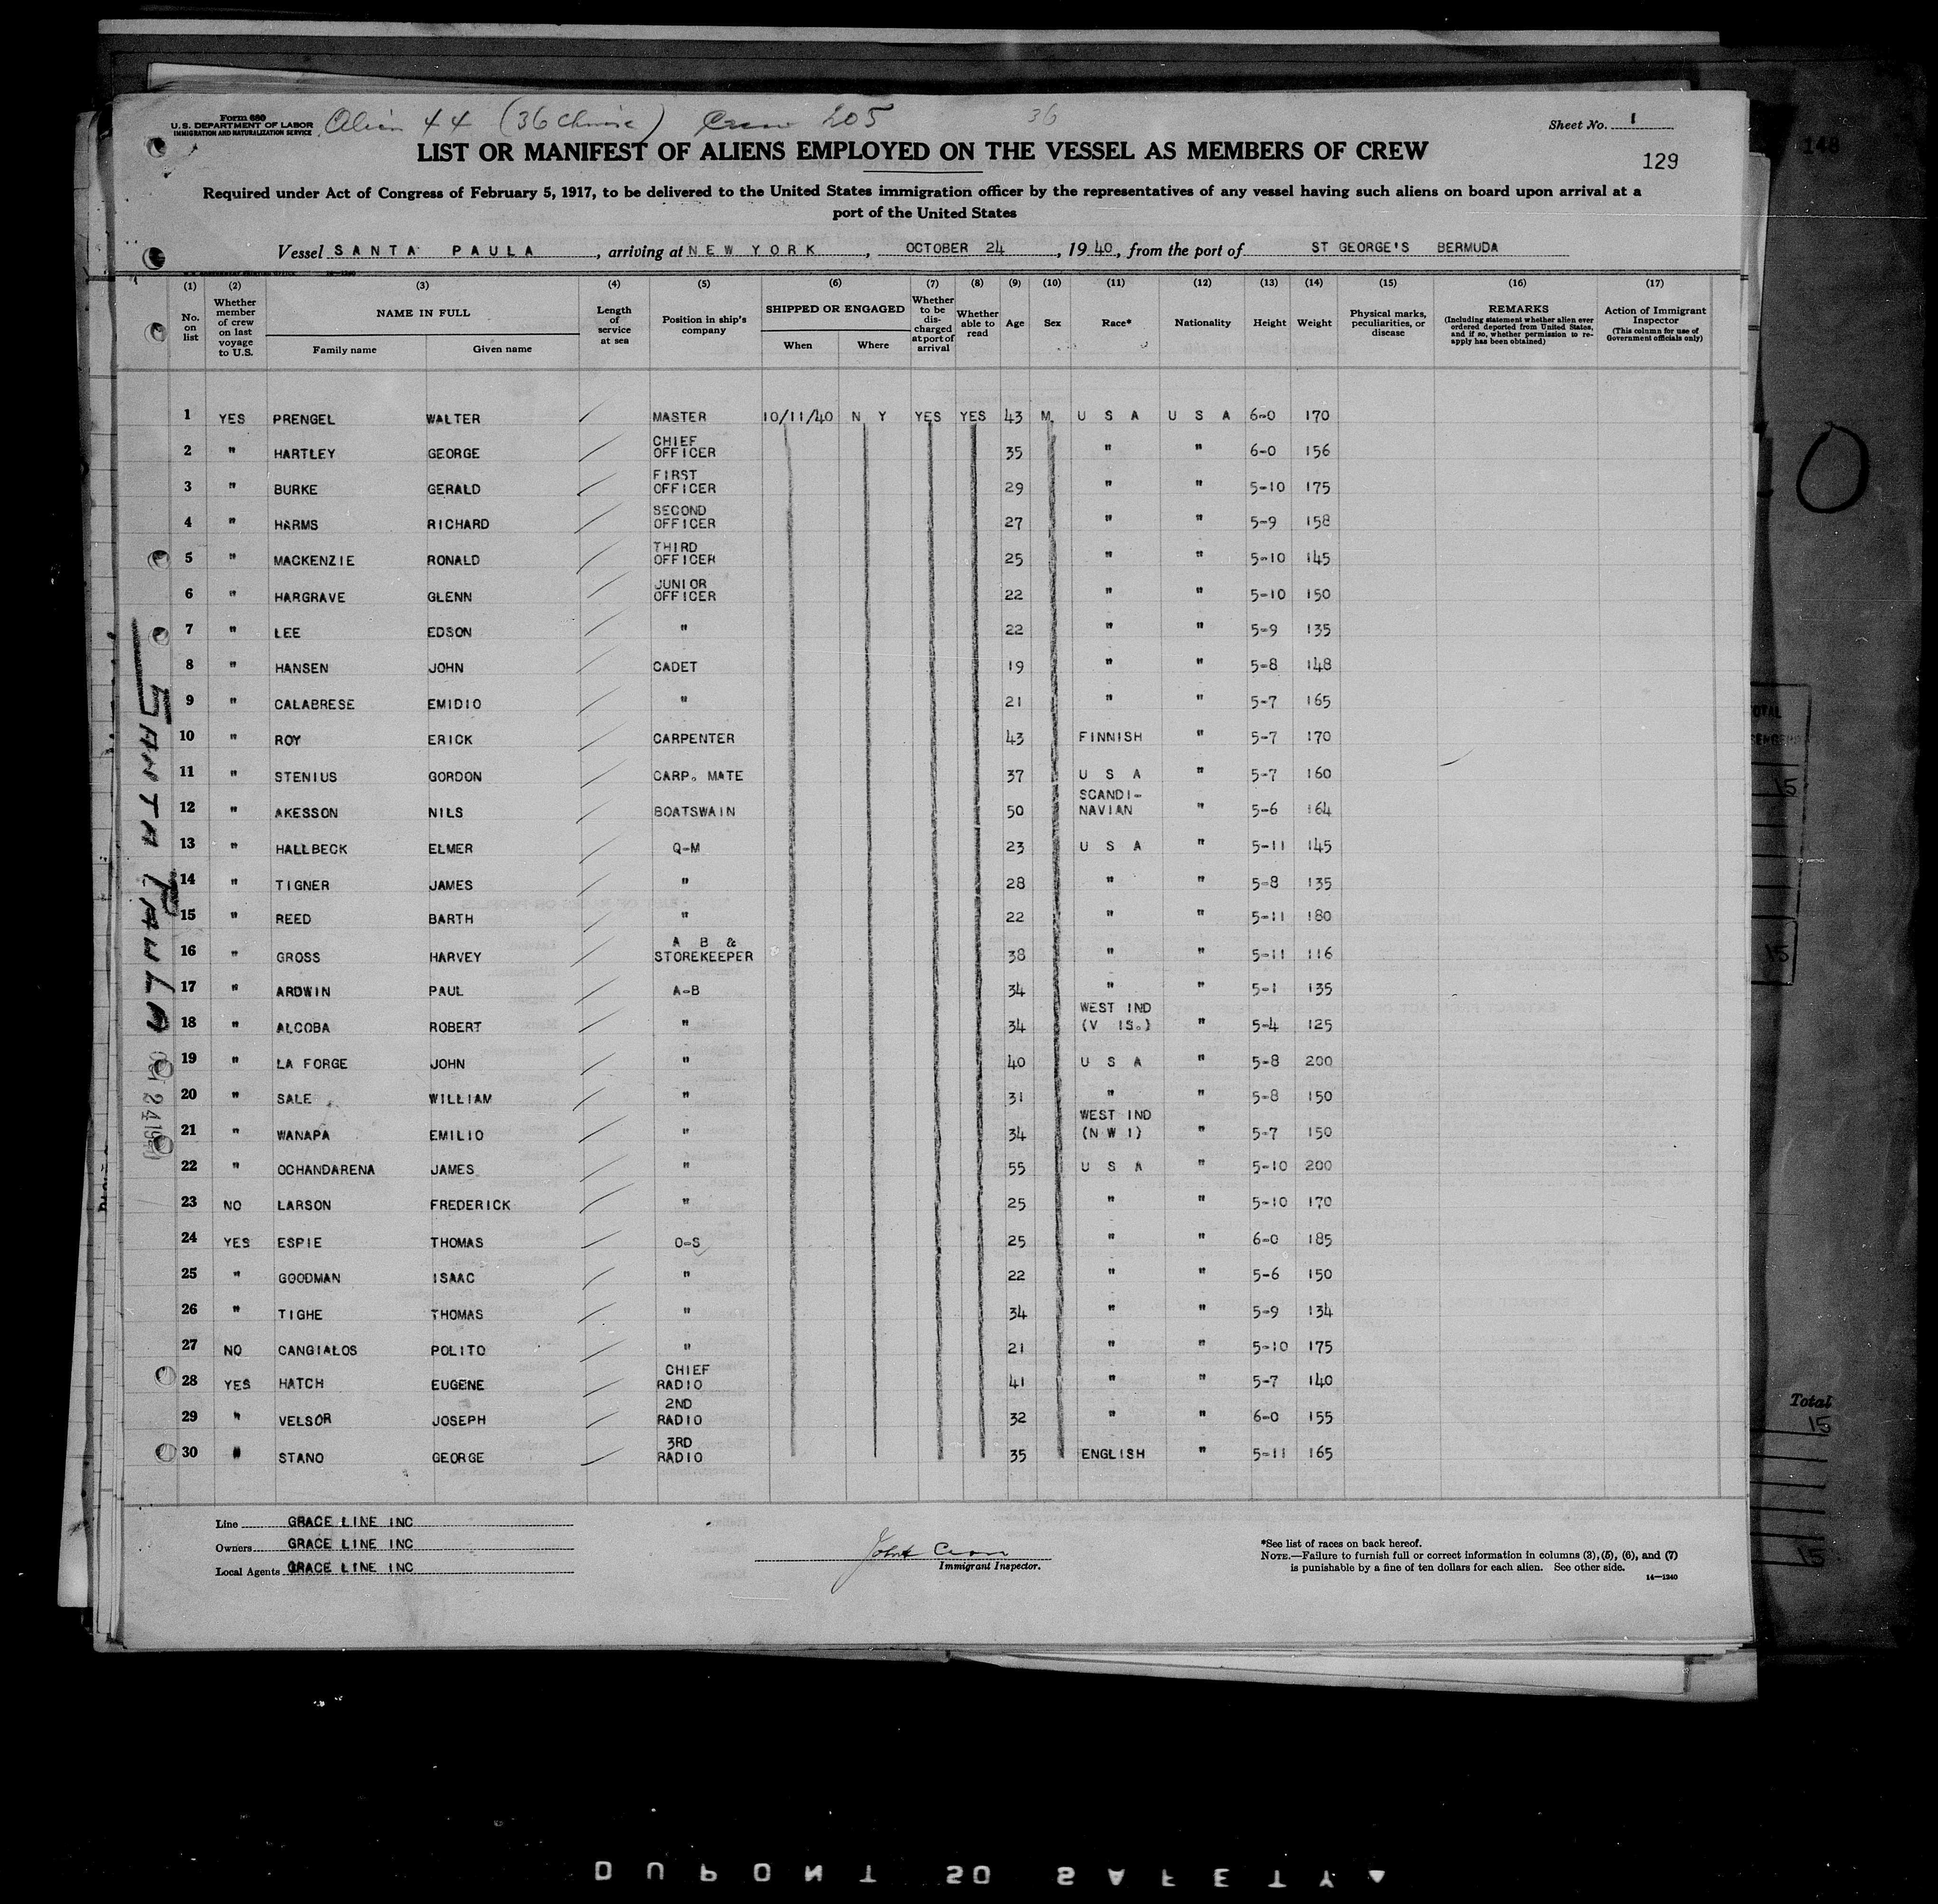 Form 680
U.S. DEPARTMENT OF LABOR
IMMIGRATION AND NATURALIZATION SERVICE
Alien 44 (36 Chinese) Crew 205 36
Sheet No. 1
LIST OR MANIFEST OF ALIENS EMPLOYED ON THE VESSEL AS MEMBERS OF CREW
129
Required under Act of Congress of February 5, 1917, to be delivered to the United States immigration officer by the representatives of any vessel having such aliens on board upon arrival at a
port of the United States
Vessel SANTA PAULA, arriving at NEW YORK, OCTOBER 24, 1940, from the port of ST GEORGE'S BERMUDA
(1) (2) (3) (4) (5) (6) (7) (8) (9) (10) (11) (12) (13) (14) (15) (16) (17)
No. on list
Whether member of crew on last voyage to U.S.
NAME IN FULL
Family name Given name
Length of service at sea
Position in ship's company
SHIPPED OR ENGAGED
When Where
Whether to be discharged at port of arrival
Whether able to read
Age
Sex
Race*
Nationality
Height
Weight
Physical marks, peculiarities, or disease
REMARKS
(Including statement whether alien ever ordered deported from United States, and if so, whether permission to reapply has been obtained)
Action of Immigrant Inspector
(This column for use of Government officials only)
1 YES PRENGEL WALTER MASTER 10/11/40 N Y YES YES 43 M. U S A U S A 6-0 170
2 " HARTLEY GEORGE CHIEF OFFICER 35 " " 6-0 156
3 " BURKE GERALD FIRST OFFICER 29 " " 5-10 175
4 " HARMS RICHARD SECOND OFFICER 27 " " 5-9 158
5 " MACKENZIE RONALD THIRD OFFICER 25 " " 5-10 145
6 " HARGRAVE GLENN JUNIOR OFFICER 22 " " 5-10 150
7 " LEE EDSON " 22 " " 5-9 135
8 " HANSEN JOHN CADET 19 " " 5-8 148
9 " CALABRESE EMIDIO " 21 " " 5-7 165
10 " ROY ERICK CARPENTER 43 FINNISH " 5-7 170
11 " STENIUS GORDON CARP. MATE 37 U S A " 5-7 160
12 " AKESSON NILS BOATSWAIN 50 SCANDI-NAVIAN " 5-6 164
13 " HALLBECK ELMER Q-M 23 U S A " 5-11 145
14 " TIGNER JAMES " 28 " " 5-8 135
15 " REED BARTH " 22 " " 5-11 180
16 " GROSS HARVEY A B & STOREKEEPER 38 " " 5-11 116
17 " ARDWIN PAUL A-B 34 " " 5-1 135
18 " ALCOBA ROBERT " 34 WEST IND (V IS.) " 5-4 125
19 " LA FORGE JOHN " 40 U S A " 5-8 200
20 " SALE WILLIAM " 31 " " 5-8 150
21 " WANAPA EMILIO " 34 WEST IND (N W I) " 5-7 150
22 " OCHANDARENA JAMES " 55 U S A " 5-10 200
23 NO LARSON FREDERICK " 25 " " 5-10 170
24 YES ESPIE THOMAS O-S 25 " " 6-0 185
25 " GOODMAN ISAAC " 22 " " 5-6 150
26 " TIGHE THOMAS " 34 " " 5-9 134
27 NO CANGIALOS POLITO " 21 " " 5-10 175
28 YES HATCH EUGENE CHIEF RADIO 41 " " 5-7 140
29 " VELSOR JOSEPH 2ND RADIO 32 " " 6-0 155
30 " STANO GEORGE 3RD RADIO 35 ENGLISH " 5-11 165
SANTA PAULA
Line GRACE LINE INC
Owners GRACE LINE INC
Local Agents GRACE LINE INC
Immigrant Inspector.
*See list of races on back hereof.
NOTE.—Failure to furnish full or correct information in columns (3), (5), (6), and (7)
is punishable by a fine of ten dollars for each alien. See other side.
14—1240
148
15
15
Total
15
15
DUPONT SO SAFETY